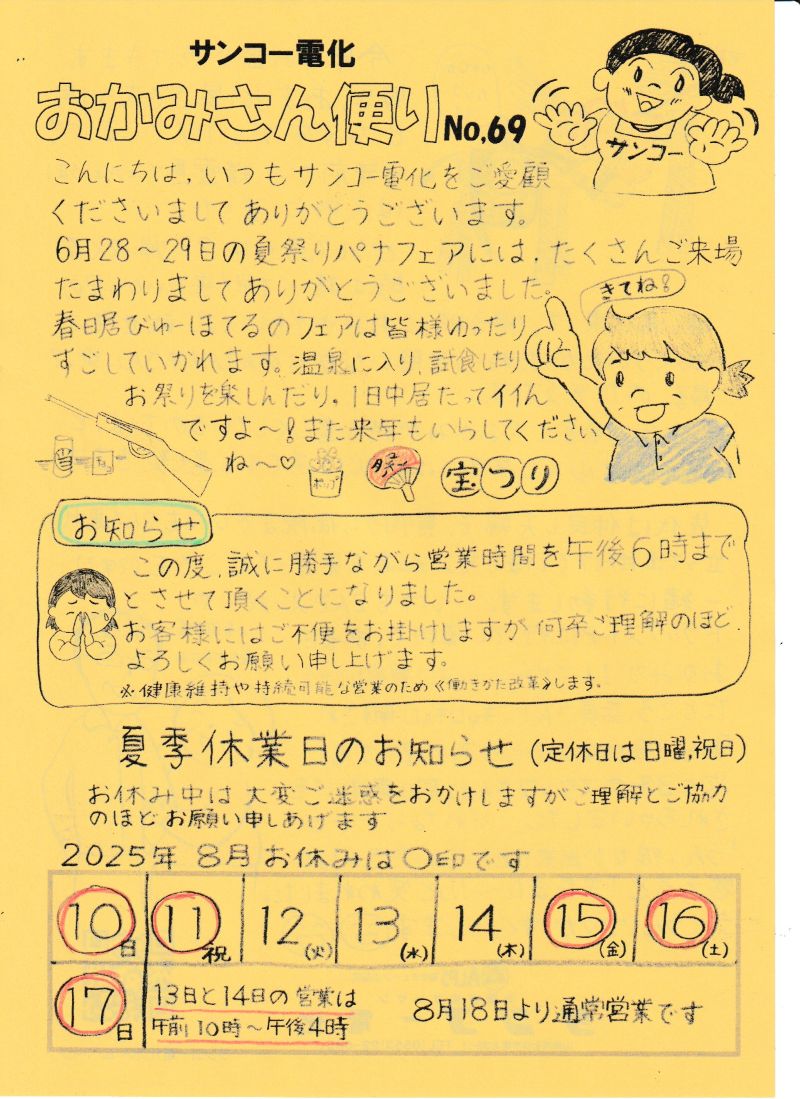 サンコー電化
おかみさん便り No,69
サンコー
こんにちは、いつもサンコー電化をご愛顧
くださいまして ありがとうございます。
6月28〜29日の夏祭りパナフェアには、たくさんご来場
たまわりまして ありがとうございました。
きてね!
春日居びゅーほてるのフェアは皆様ゆったり
すごしていかれます。温泉に入り、試食したり
お祭りを楽しんだり。1日中居たってイイん
ですよ〜!また来年もいらしてください
ね〜♡
ポップ
宝つり
お知らせ
この度、誠に勝手ながら営業時間を午後6時まで
とさせて頂くことになりました。
お客様にはご不便をお掛けしますが何卒ご理解のほど
よろしくお願い申し上げます。
※健康維持や持続可能な営業のため《働きかた改革》します。
夏季休業日のお知らせ (定休日は日曜,祝日)
お休み中は 大変ご迷惑をおかけしますがご理解とご協力
のほど お願い申しあげます
2025年 8月 お休みは〇印です
10日 11祝 12(火) 13(水) 14(木) 15(金) 16(土)
17日
13日と14日の営業は
午前10時〜午後4時
8月18日より通常営業です